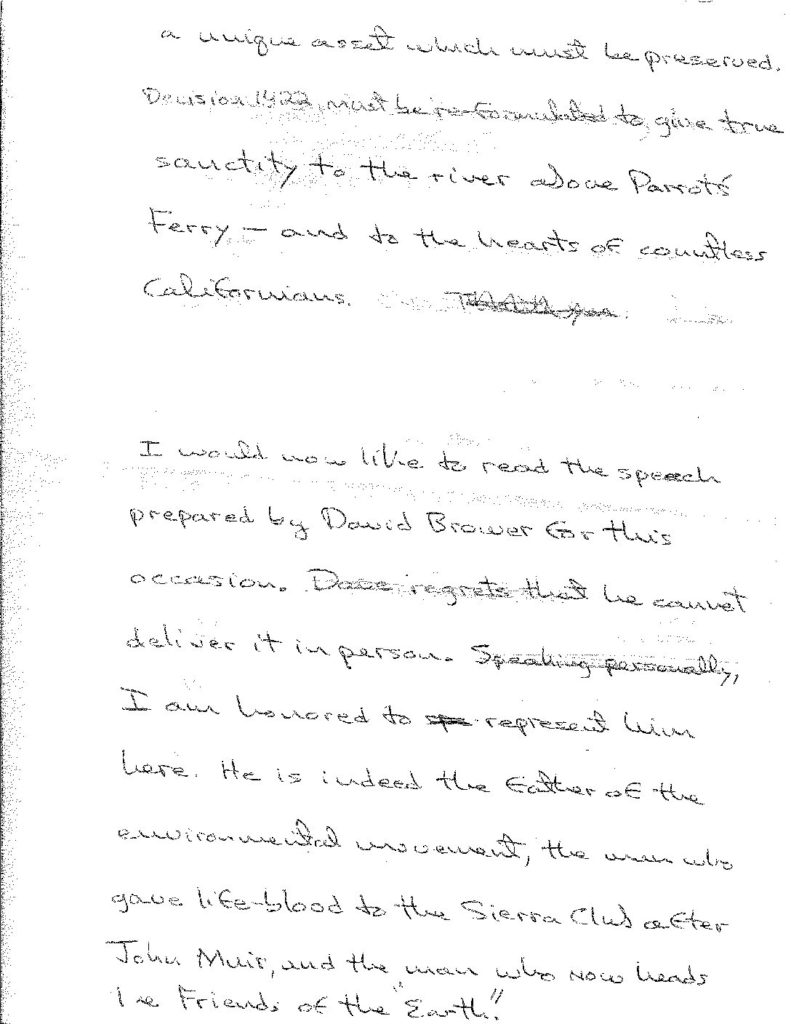 a unique asset which must be preserved.
Decision 1422 must be re-formulated to give true
sanctity to the river above Parrots
Ferry — and to the hearts of countless
Californians. Thank you.
I would now like to read the speech
prepared by David Brower for this
occasion. Dave regrets that he cannot
deliver it in person. Speaking personally,
I am honored to spe represent him
here. He is indeed the father of the
environmental movement, the man who
gave life-blood to the Sierra Club after
John Muir, and the man who now heads
the Friends of the "Earth."